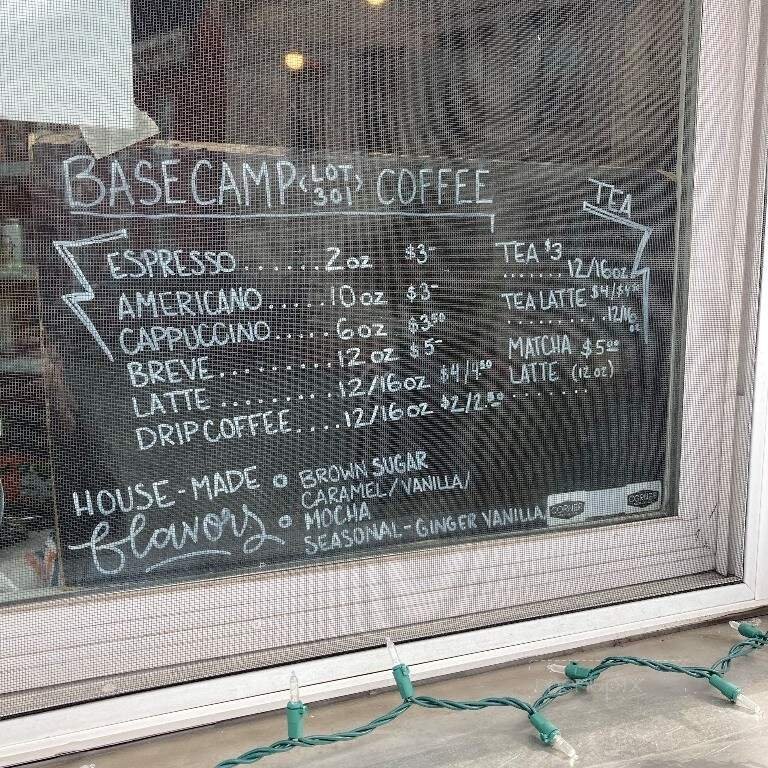 BASECAMP <LOT 301> COFFEE
ESPRESSO ...... 2 oz $3-
AMERICANO ..... 10 oz $3-
CAPPUCCINO ..... 6 oz $3.50
BREVE ......... 12 oz $5-
LATTE ......... 12/16 oz $4/4.50
DRIP COFFEE .... 12/16 oz $2/2.50
TEA
TEA $3
...... 12/16oz
TEA LATTE $4/$4.50
......... 12/16 oz
MATCHA $5.00
LATTE (12 oz)
.......
HOUSE-MADE
flavors
o BROWN SUGAR
CARAMEL/VANILLA/
o MOCHA
SEASONAL - GINGER VANILLA
CORNER
CORNER